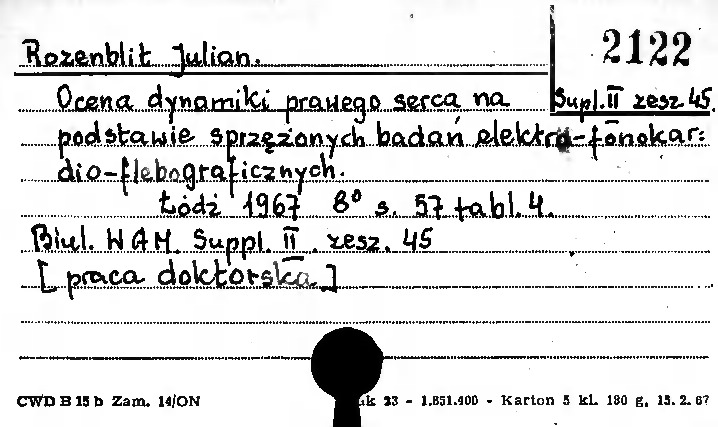 2122
Rozenblit Julian.
Suppl. II zesz. 45.
Ocena dynamiki prawego serca na
podstawie sprzężonych badań elektro-fonokar=
dio-flebograficznych.
Łódź 1967 8° s. 57 tabl. 4.
Biul. WAM. Suppl. II. zesz. 45
[praca doktorska]
CWD B 15 b Zam. 14/ON 23 - 1.851.400 - Karton 5 kl. 180 g, 15. 2. 67